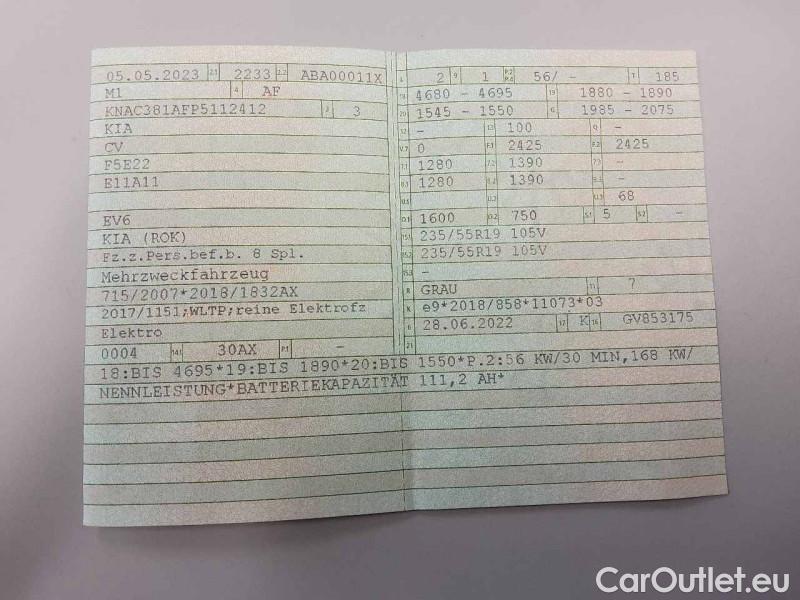 05.05.2023 2.1 2233 2.2 ABA00011X
M1 4 AF
KNAC381AFP5112412 3 3
KIA
CV
F5E22
E11A11
EV6
KIA (ROK)
Fz.z.Pers.bef.b. 8 Spl.
Mehrzweckfahrzeug
715/2007*2018/1832AX
2017/1151;WLTP;reine Elektrofz
Elektro
0004 14.1 30AX P.1 -
L 2 9 1 P.2 P.4 56/ - T 185
18 4680 - 4695 19 1880 - 1890
20 1545 - 1550 G 1985 - 2075
12 - 13 100 Q -
V.7 0 F.1 2425 F.2 2425
7.1 1280 7.2 1390 7.3 -
8.1 1280 8.2 1390 8.3 -
U.1 U.2 U.3 68
O.1 1600 O.2 750 S.1 5 S.2 -
15.1 235/55R19 105V
15.2 235/55R19 105V
15.3 -
R GRAU 11 7
K e9*2018/858*11073*03
6 28.06.2022 17 K 16 GV853175
21
18:BIS 4695*19:BIS 1890*20:BIS 1550*P.2:56 KW/30 MIN,168 KW/
NENNLEISTUNG*BATTERIEKAPAZITÄT 111,2 AH*
CarOutlet.eu